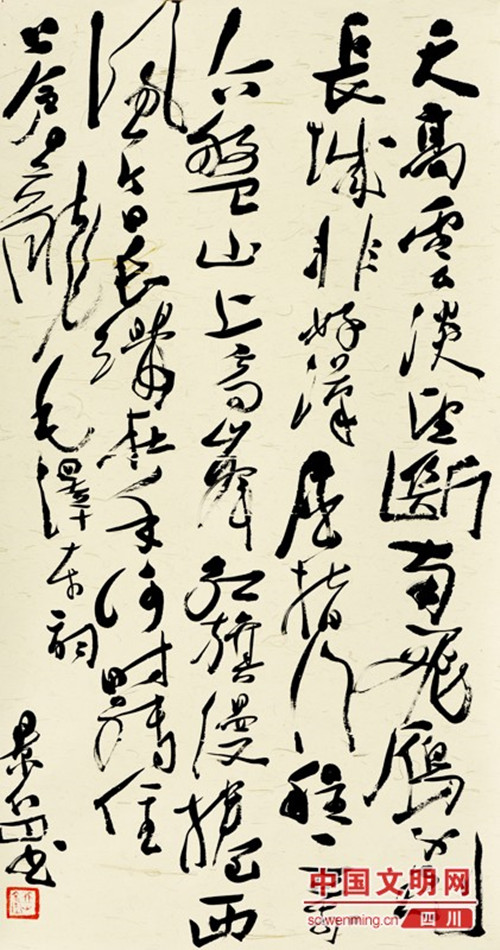 天高雲淡望斷南飛鴈不到
長城非好漢屈指行程二萬
六盤山上高峯紅旗漫捲西
風今日長纓在手何時縛住
蒼龍 毛澤東詞
景 書
中国文明网
scwenming.cn 四川